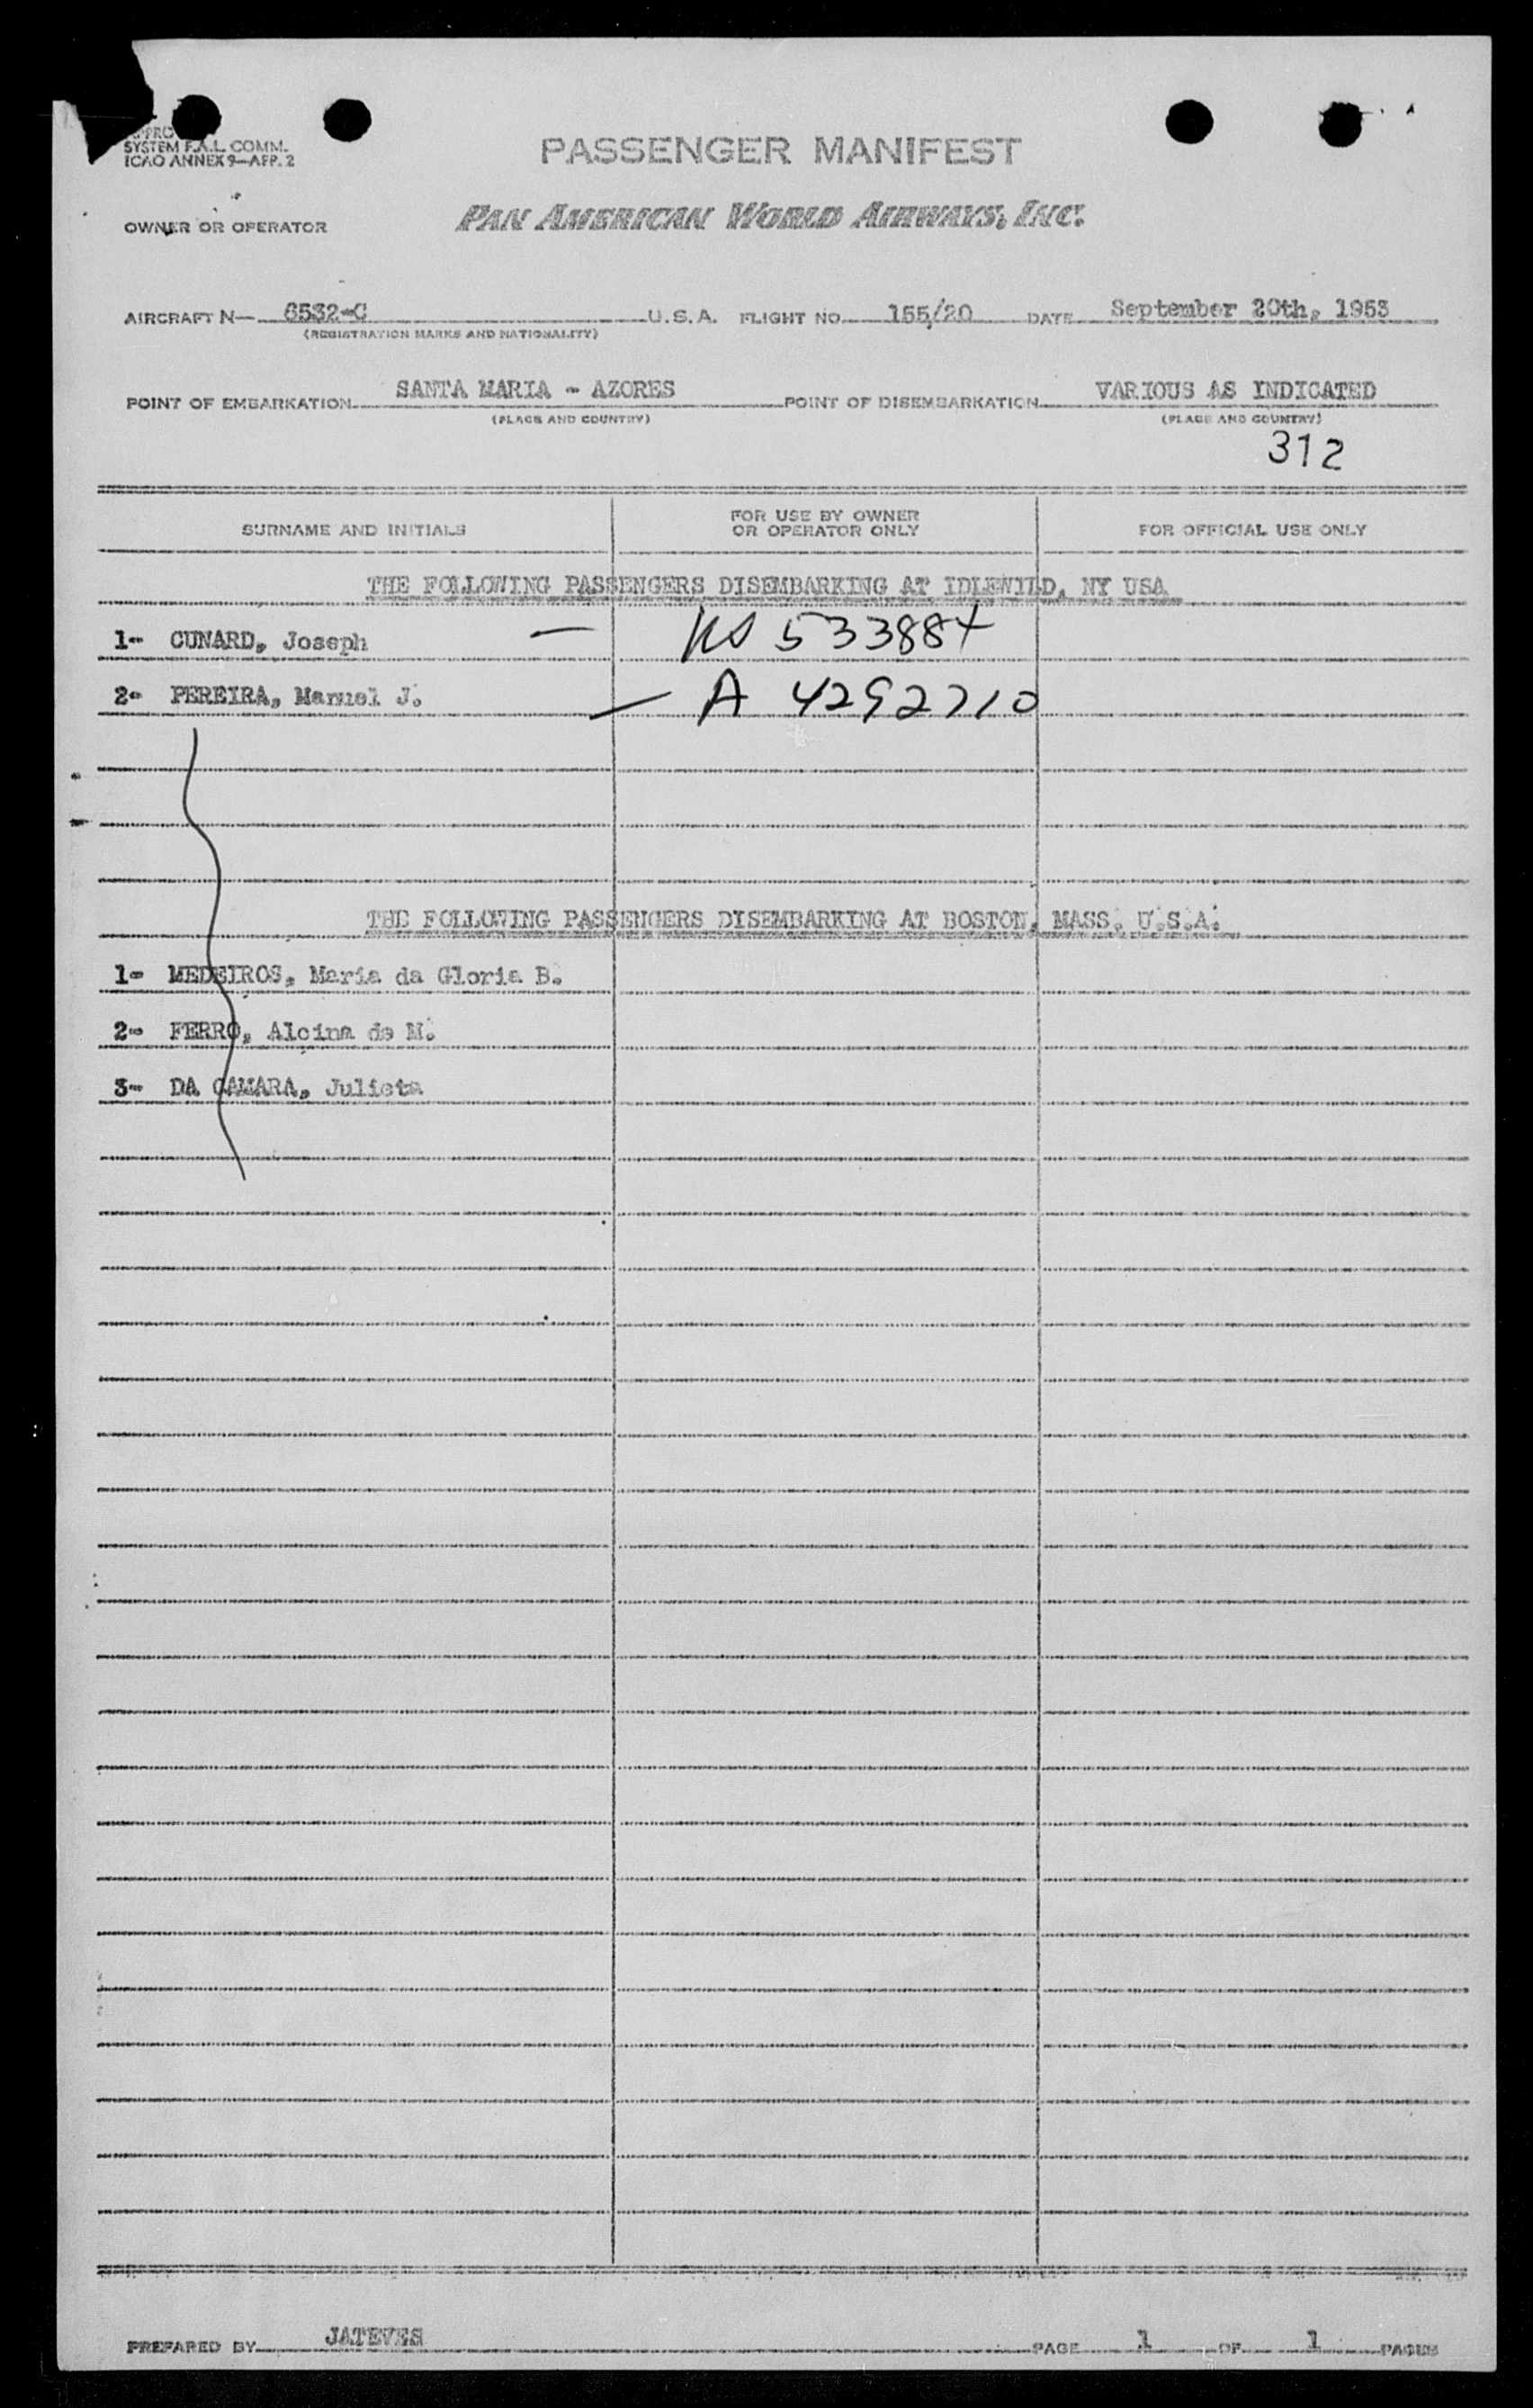 SYSTEM F.A.L. COMM.
ICAO ANNEX 9—APP. 2
PASSENGER MANIFEST
OWNER OR OPERATOR PAN AMERICAN WORLD AIRWAYS, INC.
AIRCRAFT N— 6532-C U.S.A. FLIGHT NO. 155/20 DATE September 20th, 1953
(REGISTRATION MARKS AND NATIONALITY)
POINT OF EMBARKATION SANTA MARIA - AZORES POINT OF DISEMBARKATION VARIOUS AS INDICATED
(PLACE AND COUNTRY) (PLACE AND COUNTRY)
312
SURNAME AND INITIALS FOR USE BY OWNER OR OPERATOR ONLY FOR OFFICIAL USE ONLY
THE FOLLOWING PASSENGERS DISEMBARKING AT IDLEWILD, NY USA
1- CUNARD, Joseph — 533884
2- PEREIRA, Manuel J. — A 4292710
THE FOLLOWING PASSENGERS DISEMBARKING AT BOSTON, MASS. U.S.A.
1- MEDEIROS, Maria da Gloria B.
2- FERRO, Alcina de M.
3- DA CAMARA, Julieta
PREPARED BY JATEVES PAGE 1 OF 1 PAGES